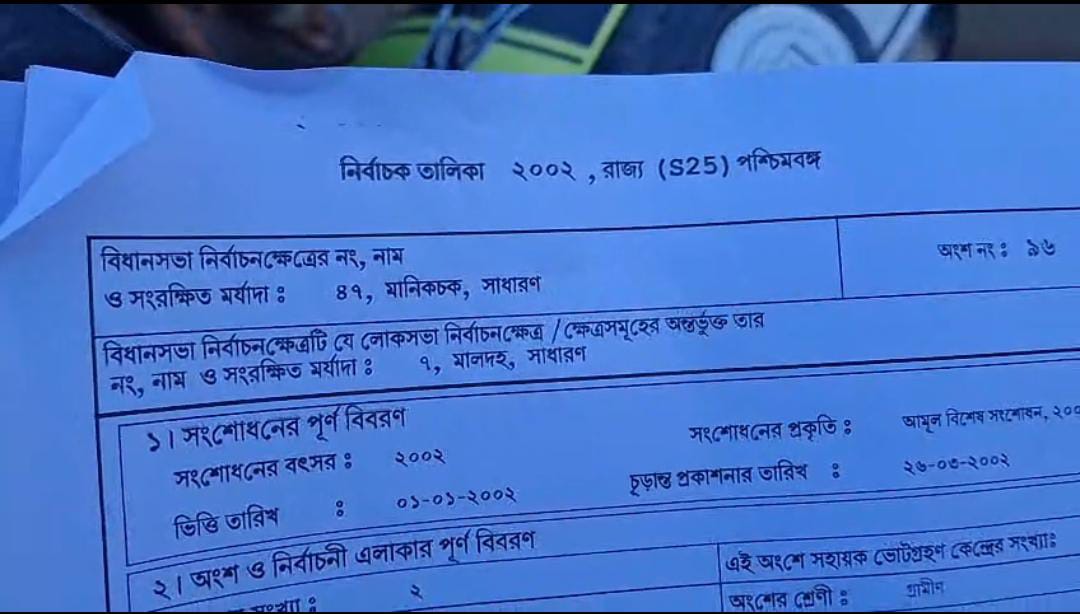 নির্বাচক তালিকা ২০০২ , রাজ্য (S25) পশ্চিমবঙ্গ
বিধানসভা নির্বাচনক্ষেত্রের নং, নাম
ও সংরক্ষিত মর্যাদা : ৪৭, মানিকচক, সাধারণ
অংশ নং : ৯৬
বিধানসভা নির্বাচনক্ষেত্রটি যে লোকসভা নির্বাচনক্ষেত্র / ক্ষেত্রসমূহের অন্তর্ভুক্ত তার
নং, নাম ও সংরক্ষিত মর্যাদা : ৭, মালদহ, সাধারণ
১। সংশোধনের পূর্ণ বিবরণ
সংশোধনের বৎসর : ২০০২
সংশোধনের প্রকৃতি : আমূল বিশেষ সংশোধন, ২০০
ভিত্তি তারিখ : ০১-০১-২০০২
চূড়ান্ত প্রকাশনার তারিখ : ২৬-০৩-২০০২
২। অংশ ও নির্বাচনী এলাকার পূর্ণ বিবরণ
এই অংশে সহায়ক ভোটগ্রহণ কেন্দ্রের সংখ্যাঃ
২
অংশের শ্রেণী : গ্রামীন